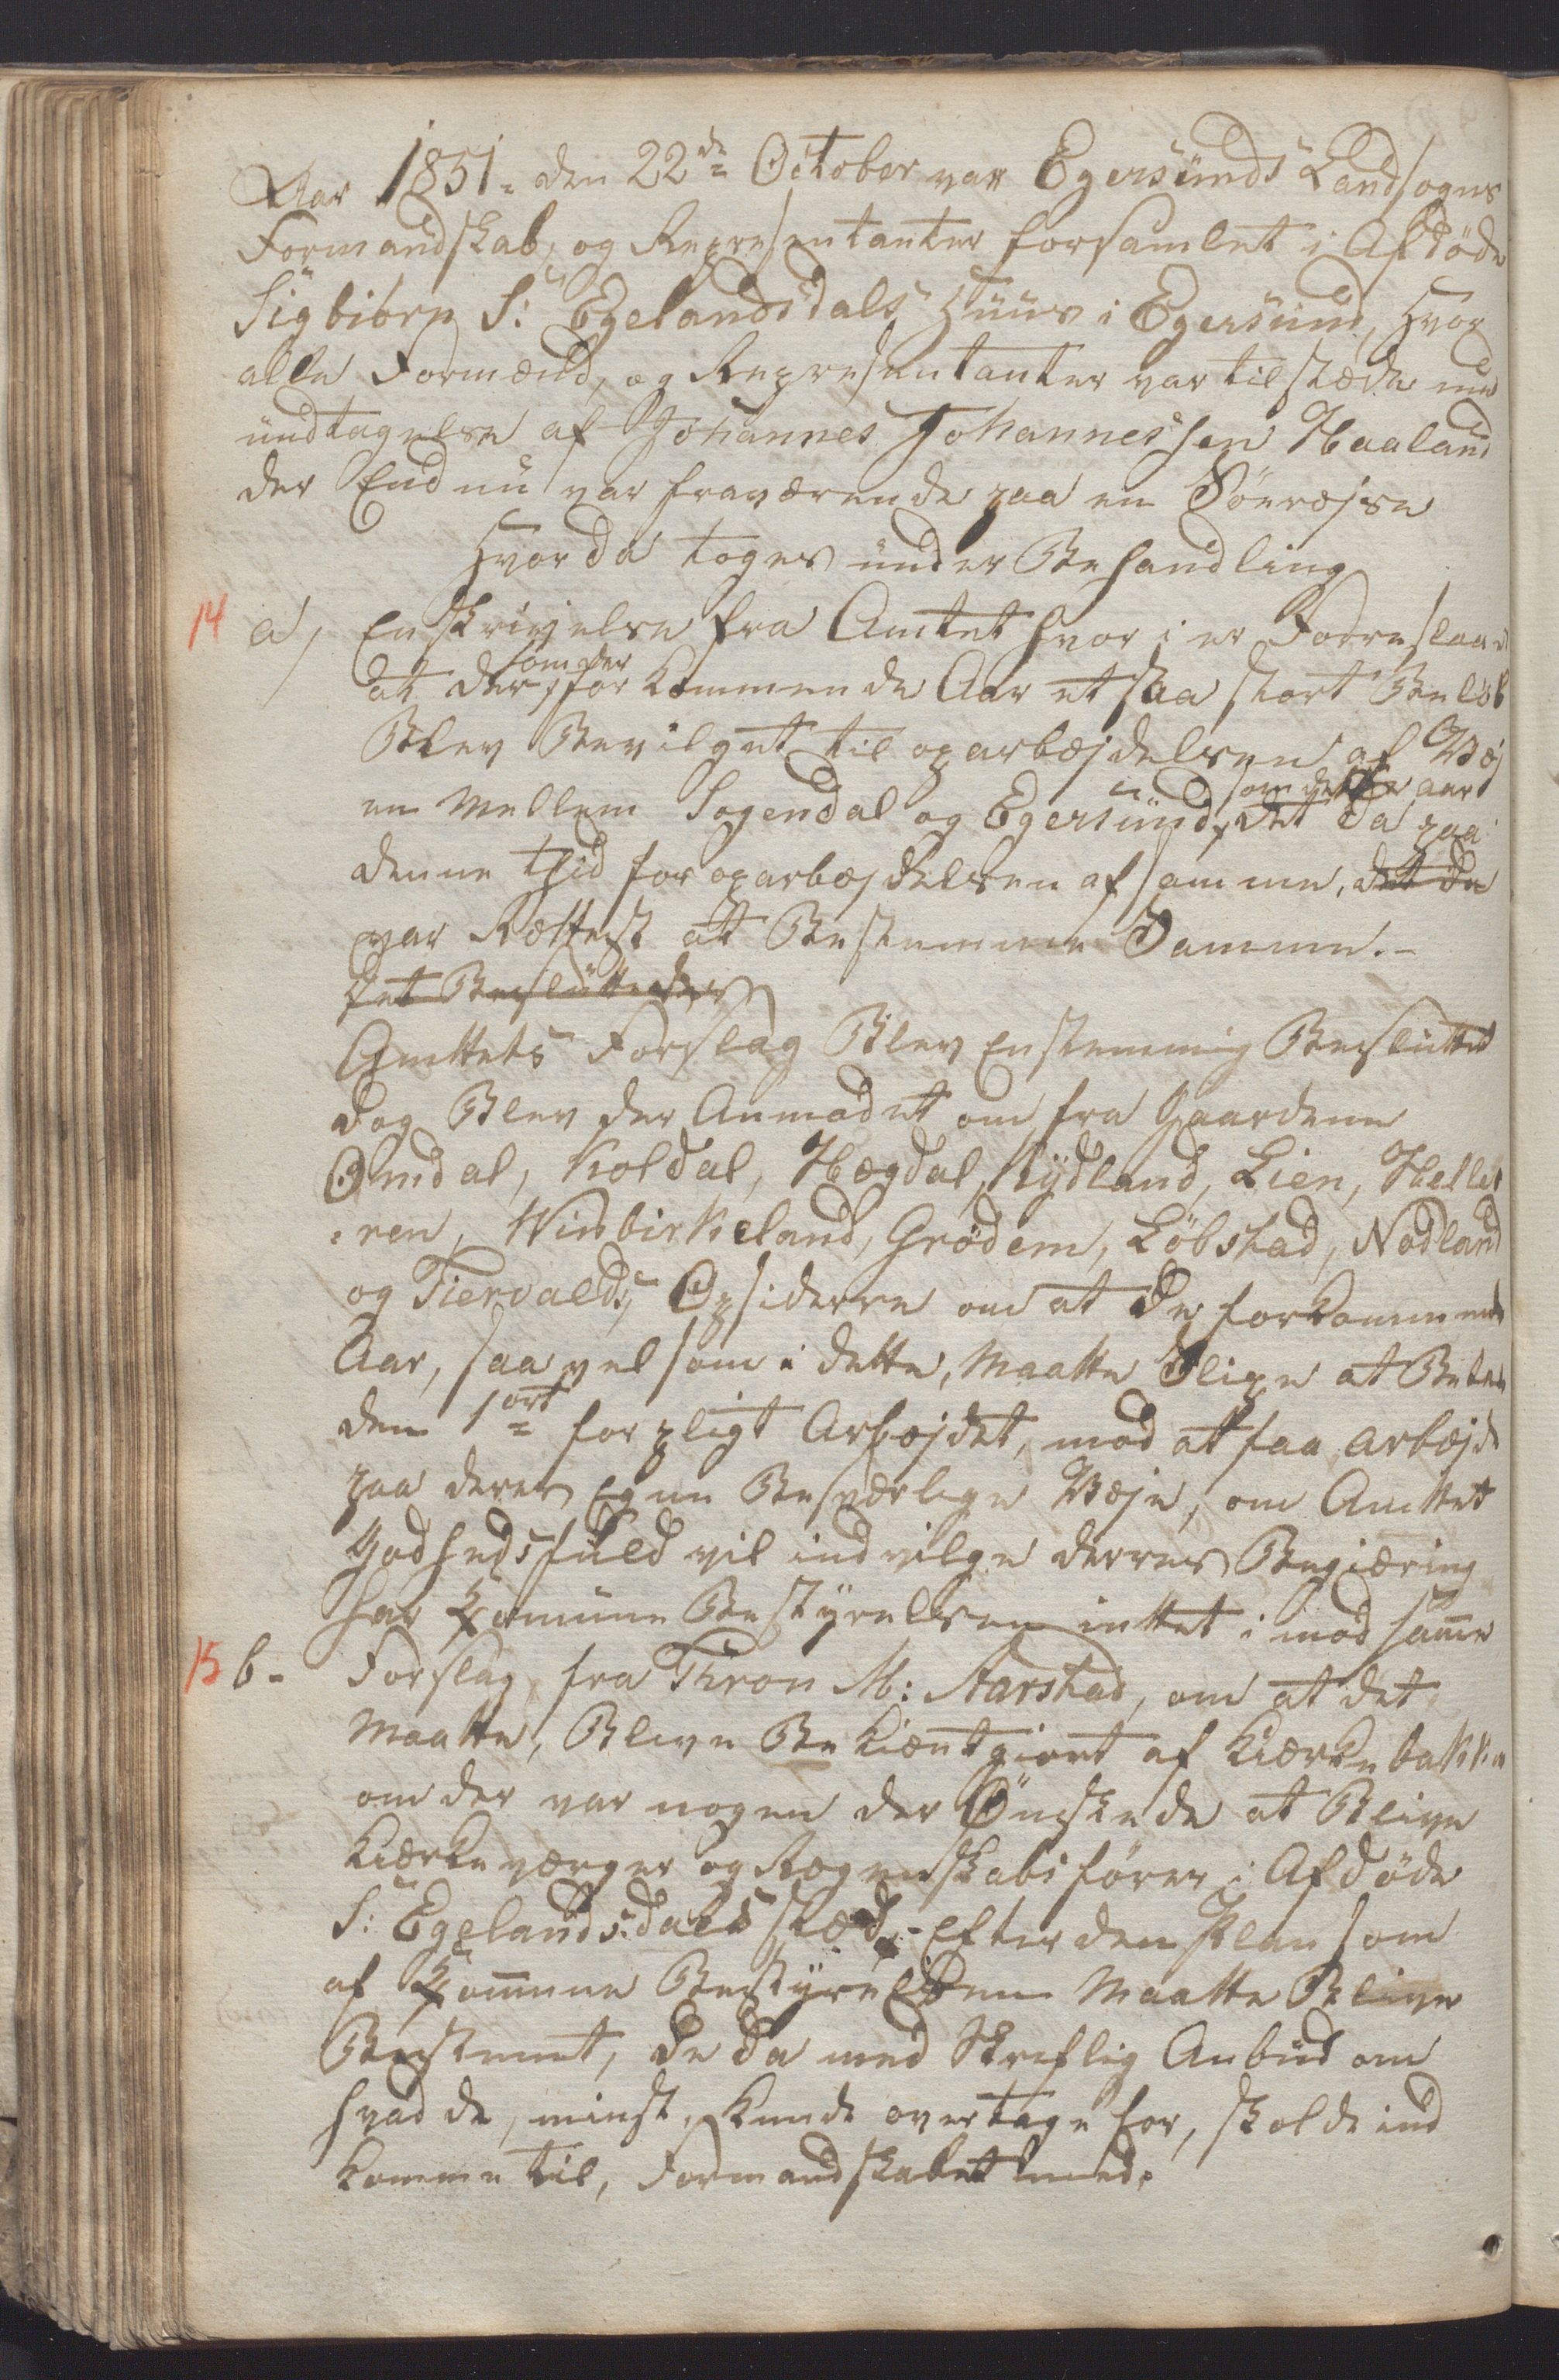 Aar 1851. den 22de October var Egersunds Landsogns
Formandskab, og Representanter forsamlet i Afdøde
Sigbiørn S: Egelandsdals Huus i Egersund, Hvor
alle Formænd, og Representanter var tilstæde med
undtagelse af Johannes Johannessen Haaland
der Endnu var fraværende paa en Söereise
Hvor da toges under Behandling
14 a, En skrivelse fra Amtet hvor i er Foreslaaet
at der, som der for kommende Aar et saa stort Beløb
Blev Bevilget til oparbejdelsen af Vej
en Mellem Sogendal og Egersund, som dette aar det da paa
denne tiid for oparbejdelsen af samme, det da
var Rættest at Bestemme Samme.-
det Besluttedes
Amttets Forslag Blev Enstemmig Besluttet
dog Blev der Anmodet om fra Gaardene
Omdal, Koldal, Hægdal, Rydland, Lien, Helle
:ren, Winbirkeland, Grödem, Löbstad, Nodland
og Tiervald,s Opsiderre om at de forkommende
Aar, saa vel som i dette, Maatte Slipe at Betale
den 1 ort for pligt Arbejdet, mod at faa arbejde
paa deres Egne Besværlige Veje, om Amttet
Godhedsfuld vil indvilge derres Begiæring
har Komune Bestyrelsen inttet i mod samme
15 b- Forslag fra Thron M: Aarstad, om at det
Maatte, Blive Bekiæntgiort af Kiærkebakken
om der var nogen der Ønskede at Blive
Kiærkeværger og Regnskabsfører i Afdöde
S: Egelandsdals stæd,- Efter den Plan som
af Kommune Bestyrelsen Maatte Blive
Bestemt, de da med Skreflig Anbud om
hvad de, minst, kunde overtage for, skolde ind
komme til, Formandskabet med.